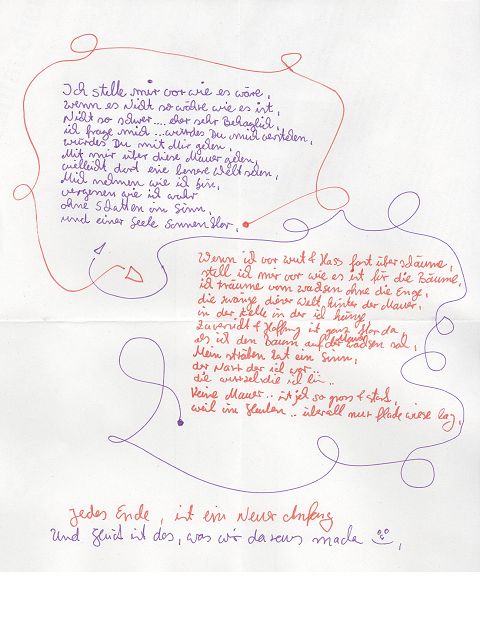 Ich stelle mir vor wie es wäre,
wenn es Nicht so währe wie es ist,
Nicht so schwer.... eher sehr Behaglich,
ich frage mich... würdes Du mich verstehen,
würdes Du mit Mir gehen,
Mit mir über diese Mauer gehen,
vielleicht dort eine bessere Welt sehen,
Mich nehmen wie ich bin,
vergessen wie ich wahr
ohne Schatten im Sinn,
und einer Seele Sonnen klar.
Wenn ich vor wut & Hass fast überschäume,
stell ich mir vor wie es ist für die Bäume,
ich träume vom wachsen ohne die Enge,
die zwänge dieser Welt hinter der Mauer,
in der Zelle in der ich hänge
Zuversicht & Hoffung ist ganz klar da
als ich den Baum auf der Mauer wachsen sah,
Mein streben hat ein Sinn,
der Narr der ich war..
die wurzel die ich bin..
Keine Mauer.. ist je so gross & stark,
weil im Glauben.. überall nur flache wiese lag,
Jedes Ende, ist ein Neuer Anfang
Und Glück ist das, was wir daraus machen